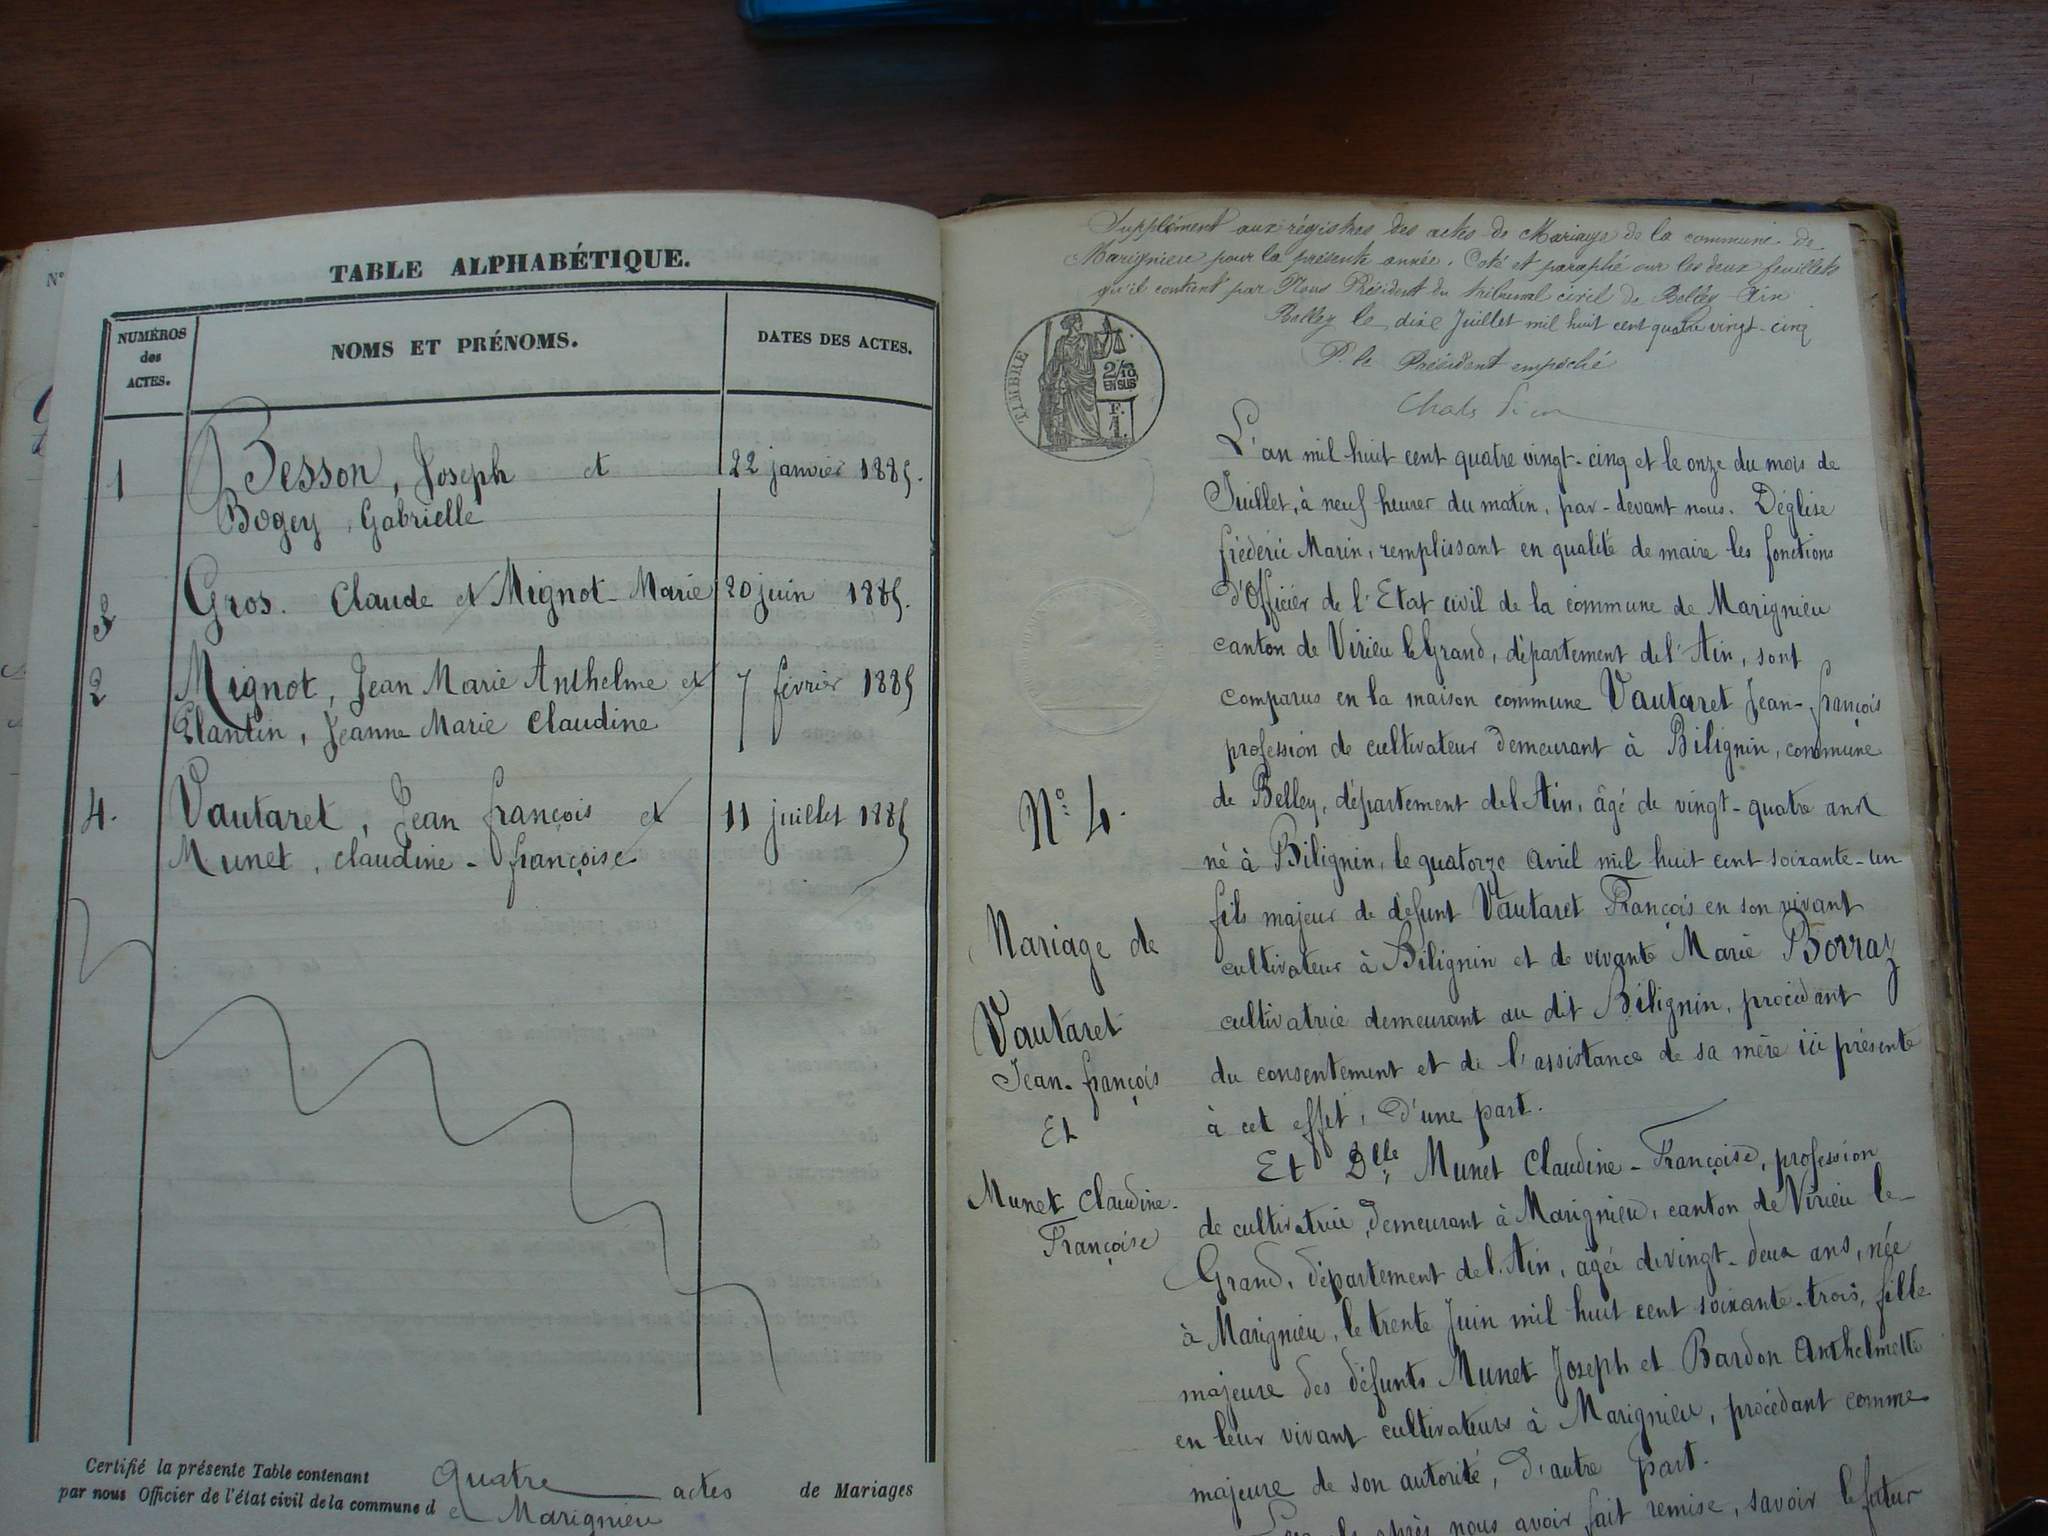 N°
TABLE ALPHABÉTIQUE.
NUMÉROS des ACTES.
NOMS ET PRÉNOMS.
DATES DES ACTES.
1 Besson, Joseph et 22 janvier 1885.
Bogey, Gabrielle
3 Gros. Claude et Mignot Marie 20 juin 1885.
2 Mignot, Jean Marie Anthelme et 7 février 1885
Plantin, Jeanne Marie Claudine
4. Vautaret, Jean françois et 11 juillet 1885
Munet, claudine-françoise
Certifié la présente Table contenant Quatre actes de Mariages
par nous Officier de l'état civil de la commune de Marignieu
Supplément aux régistres des actes de Mariage de la commune de
Marignieu pour la présente année. Coté et paraphé sur les deux feuillets
qu'il contient par Nous Président du tribunal civil de Belley Ain
Belley le dix Juillet mil huit cent quatre vingt-cinq
P. le Président empêché
TIMBRE
2/10
EN SUS
F.
1.
L'an mil huit cent quatre vingt-cinq et le onze du mois de
Juillet, à neuf heures du matin, par-devant nous. Déglise
frédéric Marin, remplissant en qualité de maire les fonctions
d'Officier de l'Etat civil de la commune de Marignieu
canton de Virieu le Grand, département de l'Ain, sont
comparus en la maison commune Vautaret Jean-françois
profession de cultivateur demeurant à Bilignin, commune
de Belley, département de l'Ain, âgé de vingt-quatre ans
né à Bilignin, le quatorze avril mil huit cent soixante-un
fils majeur de défunt Vautaret François en son vivant
cultivateur à Bilignin et de vivante Marie Borraz
cultivatrice demeurant au dit Bilignin, procédant
du consentement et de l'assistance de sa mère ici présente
à cet effet, d'une part.
N° 4.
Mariage de
Vautaret
Jean-françois
Et
Munet Claudine-
Françoise
Et Dlle Munet Claudine-Françoise, profession
de cultivatrice, demeurant à Marignieu, canton de Virieu le-
Grand, département de l'Ain, âgée de vingt-deux ans, née
à Marignieu, le trente Juin mil huit cent soixante-trois, fille
majeure des défunts Munet Joseph et Bardon Anthelmette
en leur vivant cultivateurs à Marignieu, procédant comme
majeure de son autorité, d'autre part.
après nous avoir fait remise, savoir le futur